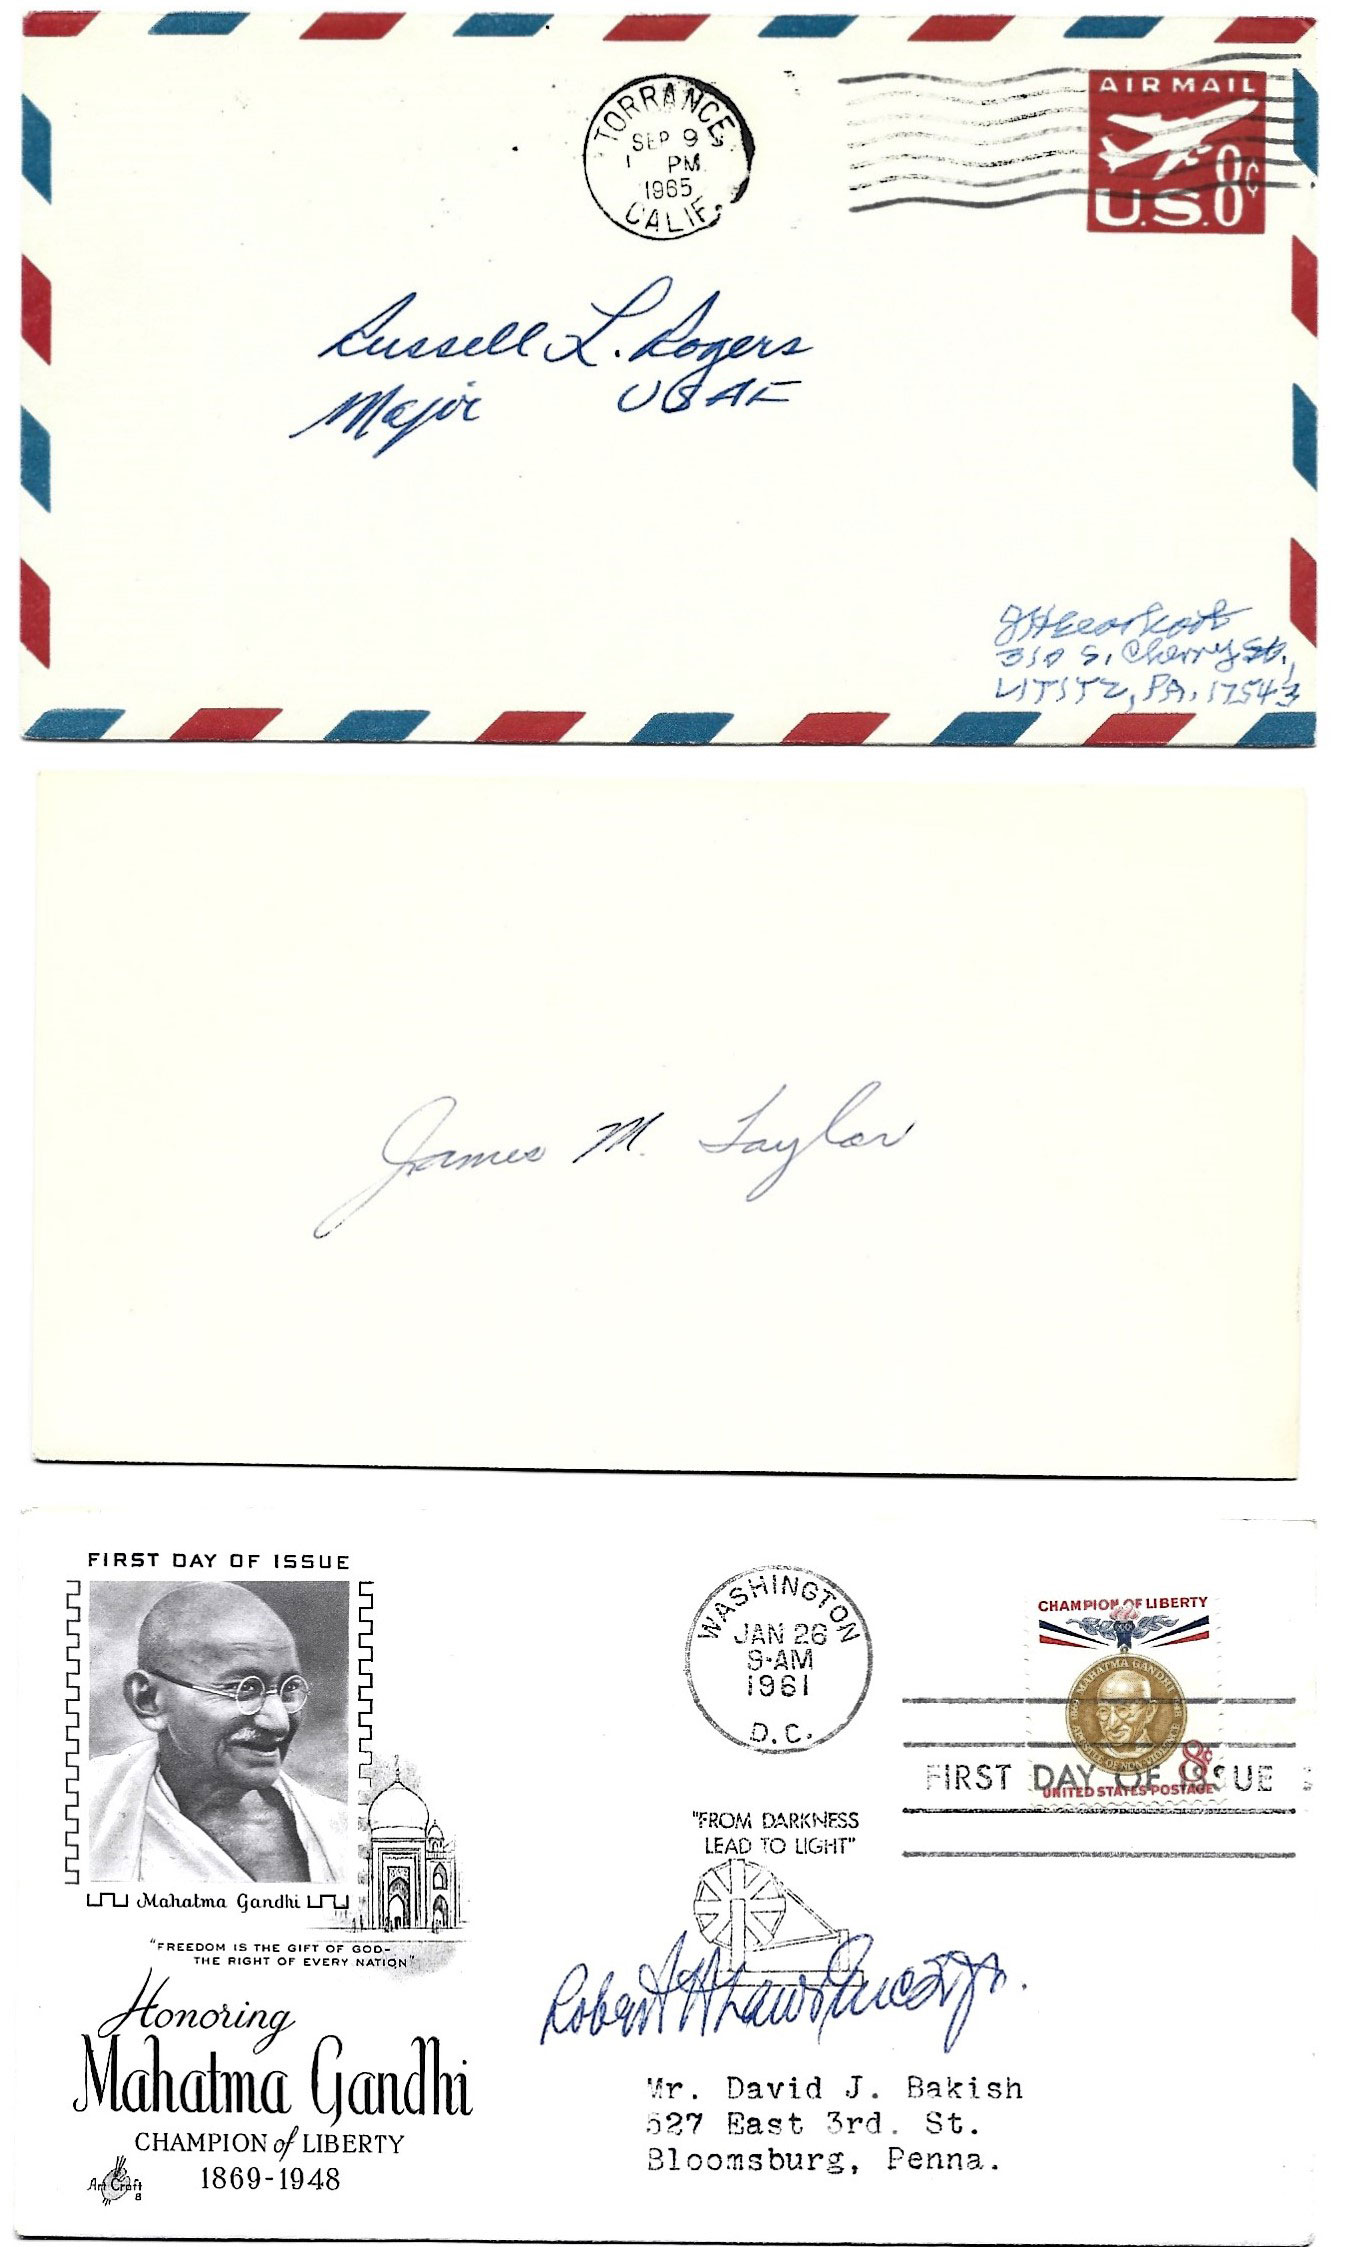 TORRANCE,
SEP 9
1 PM
1965
CALIF.
AIR MAIL
U.S. 8¢
Russell L. Rogers
Major USAF
310 S. Cherry St.,
LITITZ, PA. 17543
James M. Taylor
FIRST DAY OF ISSUE
Mahatma Gandhi
"FREEDOM IS THE GIFT OF GOD-
THE RIGHT OF EVERY NATION"
Honoring
Mahatma Gandhi
CHAMPION of LIBERTY
1869-1948
Art Craft
WASHINGTON
JAN 26
9-AM
1961
D.C.
"FROM DARKNESS
LEAD TO LIGHT"
CHAMPION OF LIBERTY
MAHATMA GANDHI
8¢
UNITED STATES POSTAGE
FIRST DAY OF ISSUE
Robert H Lawrence Jr.
Mr. David J. Bakish
527 East 3rd. St.
Bloomsburg, Penna.